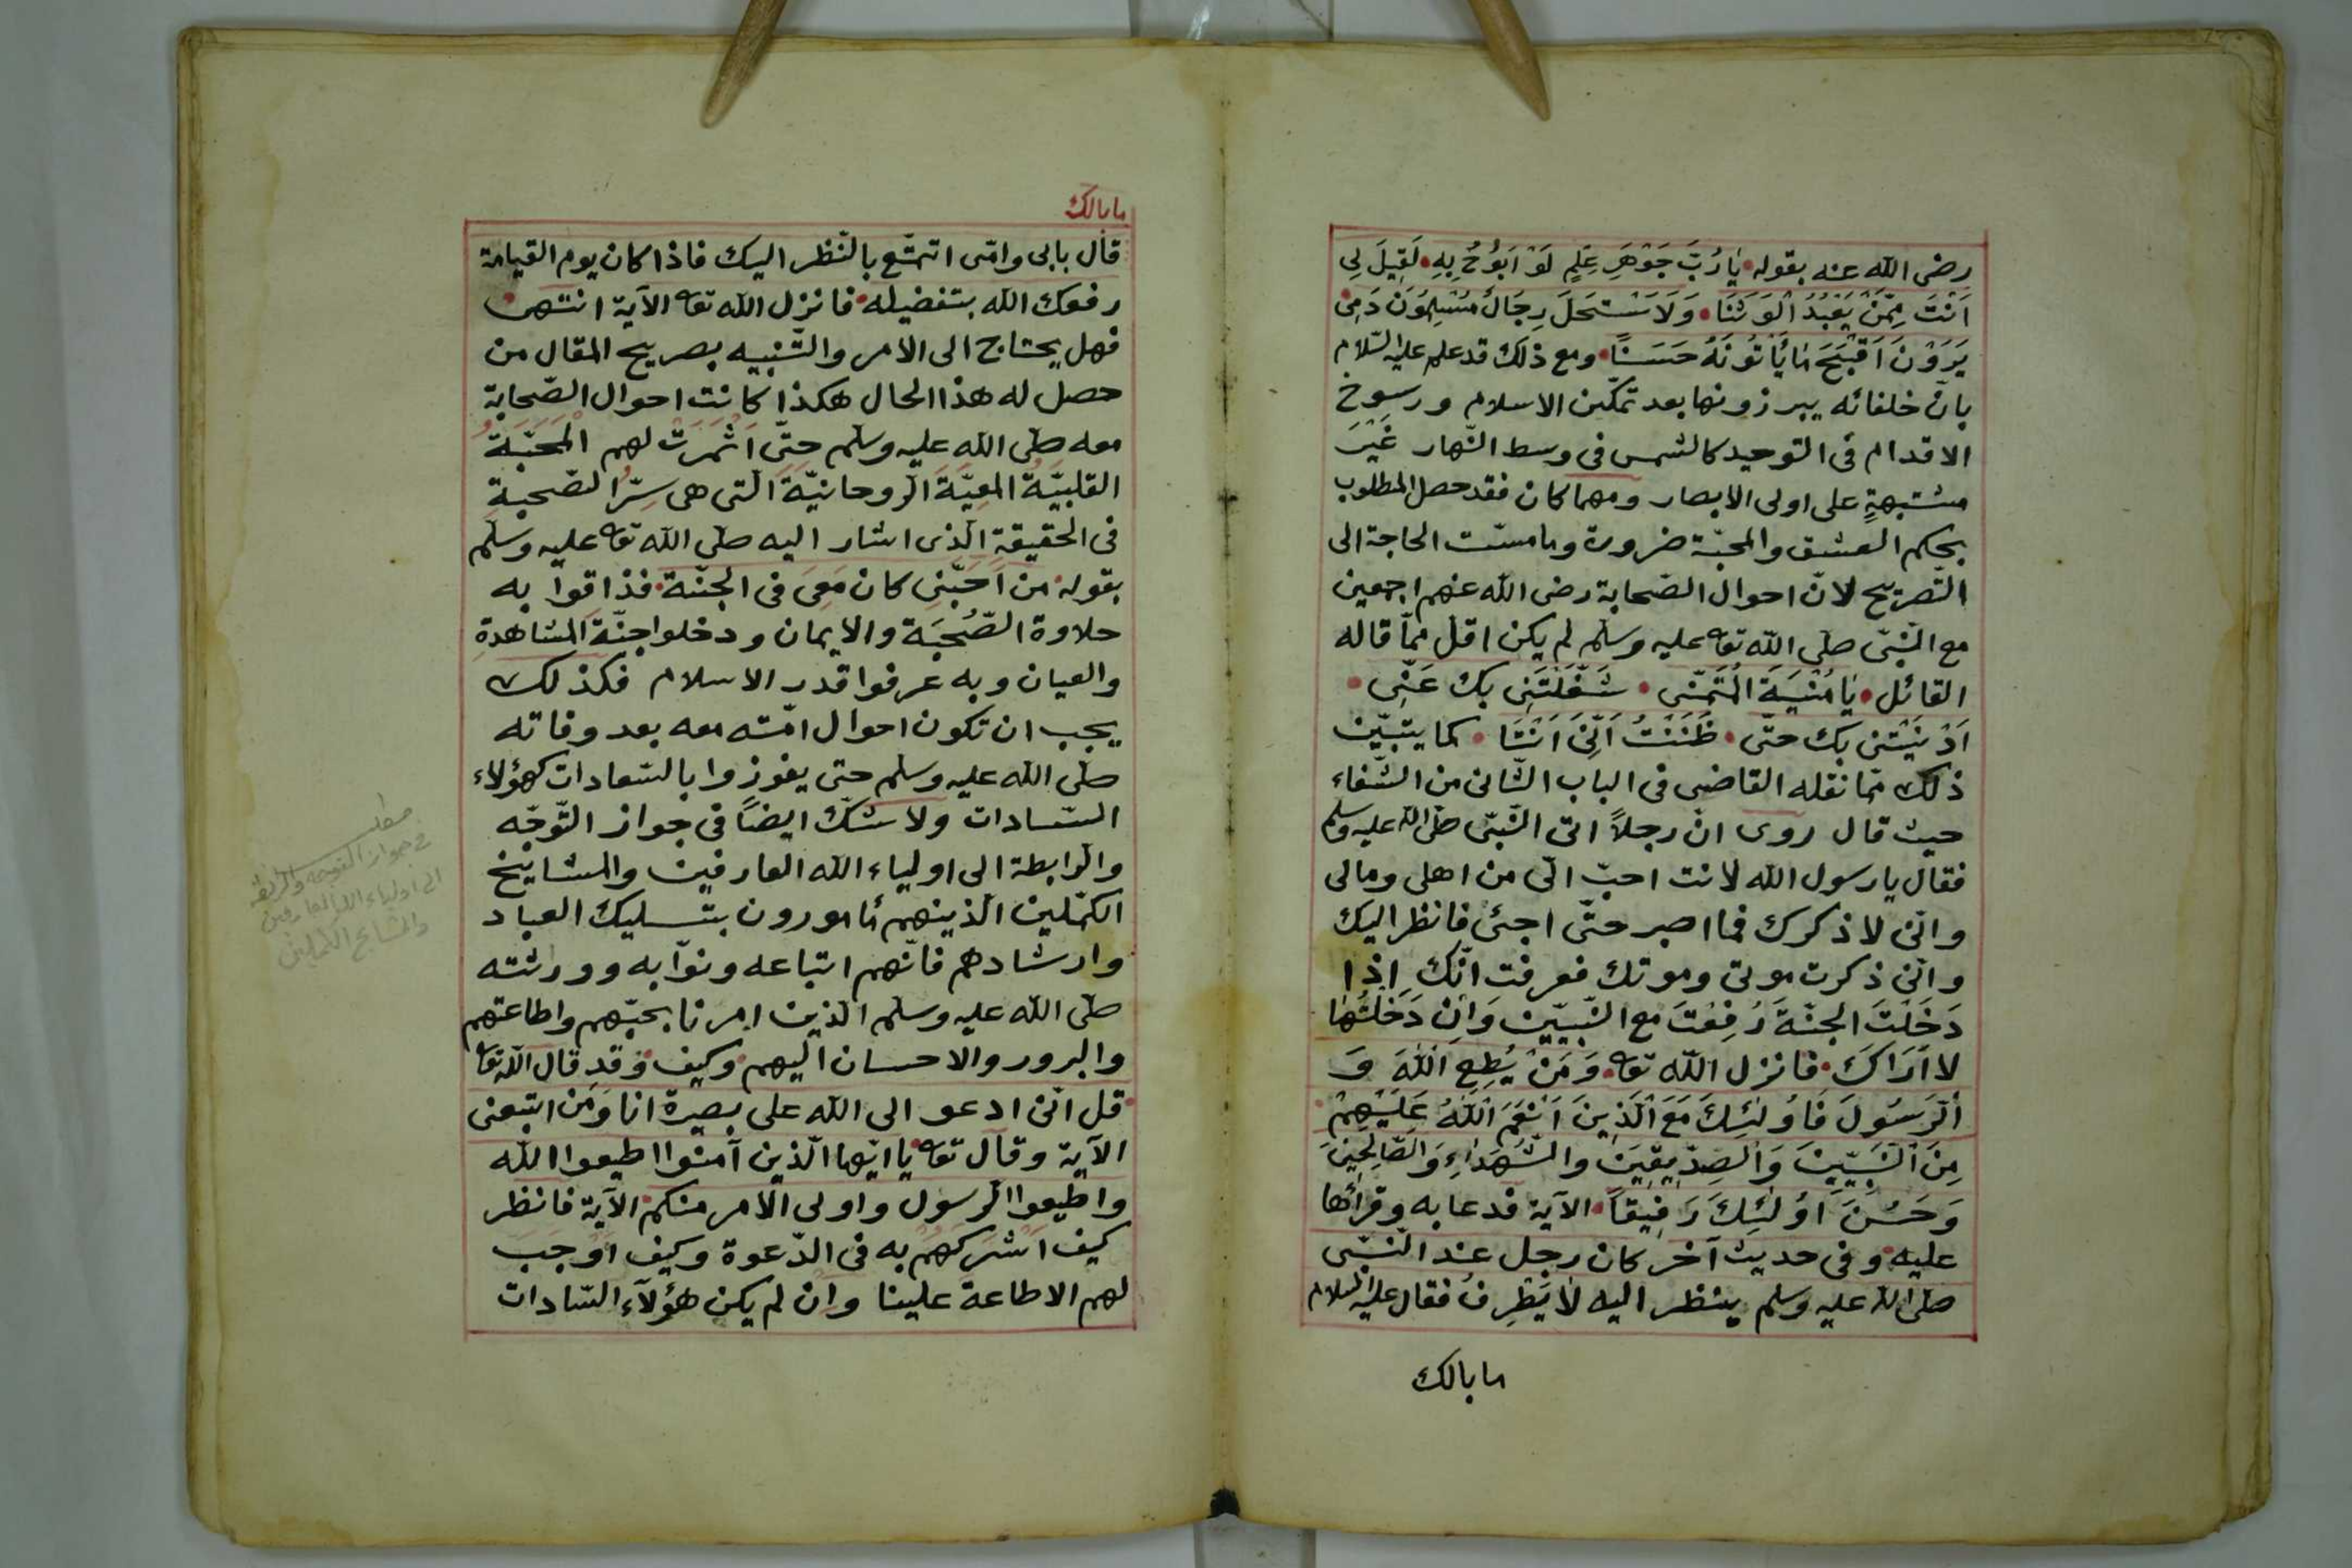 رضى الله عنه بقوله يَا رُبَّ جَوْهَرِ عِلْمٍ لَوْ اَبُوُحُ بِهِ لَقِيلَ لِى
اَنْتَ مِمَّنْ يَعْبُدُ الْوَثَنَا وَلَاَسْتَحَلَ رِجَالٌ مُسْلِمُوَنَ دَمِى
يَرَوْنَ اَقْبَحَ مَا يَأتُونَهُ حَسَنًا ومع ذلك قد علم عليه السّلام
بانّ خلفائه يبرزونها بعد تمكّن الاسلام ورسوخ
الاقدام فى التوحيد كالشمس فى وسط النّهار غَيْرَ
مشتبهةٍ على اولى الابصار ومهما كان فقد حصل المطلوب
بحكم العشق والمحبّة ضرورة وما مسّت الحاجة الى
التّصريح لانّ احوال الصّحابة رضى الله عنهم اجمعين
مع النّبىّ صلّى الله تعا عليه وسلّم لم يكن اقلّ ممّا قاله
القائل يَا مُنْيَةَ الْمُتَمَنّى شَغَلْتَنِى بك عَنِّى
اَدْنَيْتَنى بك حتّى ظَنَنْتُ اَنِّىَ اَنْتَا كما يتبيّن
ذلك ممّا نقله القاضى فى الباب الثّانى من الشّفاء
حيث قال روى انّ رجلاً اتى النّبىّ صلّى الله عليه وسلم
فقال يا رسول الله لانت احبّ الىّ من اهلى ومالى
وانّى لاذكرك فما اصبر حتّى اجئ فانظر اليك
وانّى ذكرت موتى وموتك فعرفت انّك اِذا
دَخَلْتَ الجنّةَ رُفِعْتَ مع النّبيّين وَاِنْ دَخَلْتُهَا
لا اَرَاكَ فانزل الله تعا وَمَنْ يُطِعِ اللّٰهَ وَ
الرَسُولَ فَاُولٰئِكَ مَعَ الَّذِينَ اَنْعَمَ اللّٰهُ عَلَيْهِمْ
مِنَ النَبِيّينَ وَالصِدّيقِينَ والشُهَدَاءِ وَالصّالِحِينَ
وَحَسُنَ اوُلٰئِكَ رَفِيقاً الآية فدعا به وقرأها
عليه وفى حديث آخر كان رجل عند النّبىّ
صلّى الله عليه وسلم ينظر اليه لا يَطْرِفُ فقال عليه السلام
ما بالك
ما بالك
قال بابى وامّى اتمتّع بالنّظر اليك فاذا كان يوم القيامة
رفعك الله بتفضيله فانزل الله تعا الآية انتهى
فهل يحتاج الى الامر والتّنبيه بصريح المقال من
حصل له هذا الحال هكذا كانت احوال الصّحابة
معه صلّى الله عليه وسلم حتّى اَثْمَرَتْ لهم الْمَحَبّةُ
القلبيّةُ المعِيّةَ الروحانيّةَ الّتى هى سِرّ الصّحبةِ
فى الحقيقة الّذى اشار اليه صلّى الله تعا عليه وسلم
بقوله من اَحَبّنِى كان مَعِىَ فى الجنّة فذاقوا به
حلاوة الصُّحْبَة والايمان ودخلوا جنّة المشاهدةِ
والعيان وبه عرفوا قدر الاسلام فكذلك
يجب ان تكون احوال امّته معه بعد وفاته
صلّى الله عليه وسلم حتى يفوزوا بالسّعادات كهؤلاء
السّادات ولا شكّ ايضاً فى جواز التّوجّه
والرابطة الى اولياء الله العارفين والمشايخ
الكمّلين الّذينهم مأمورون بتسليك العباد
وارشادهم فانّهم اتباعه ونوّابه وورثته
صلى الله عليه وسلم الّذين امرنا بحبّهم واطاعتهم
والبرور والاحسان اليهم وكيف وقد قال الله تعا
قل انّى ادعو الى الله على بصيرة انا وَمَن اتبعنى
الآية وقال تعا يا ايّها الّذين آمنوا اطيعوا الله
واطيعوا الرسول واولى الامر منكم الآية فانظر
كيف اَشْرَكَهُمْ به فى الدّعوة وكيف اَوْجَبَ
لهم الاطاعة علينا وان لم يكن هؤلآء السّادات
مطلب
فى جواز التوجه والرابطة
الى اولياء الله العارفين
والمشايخ الكملين